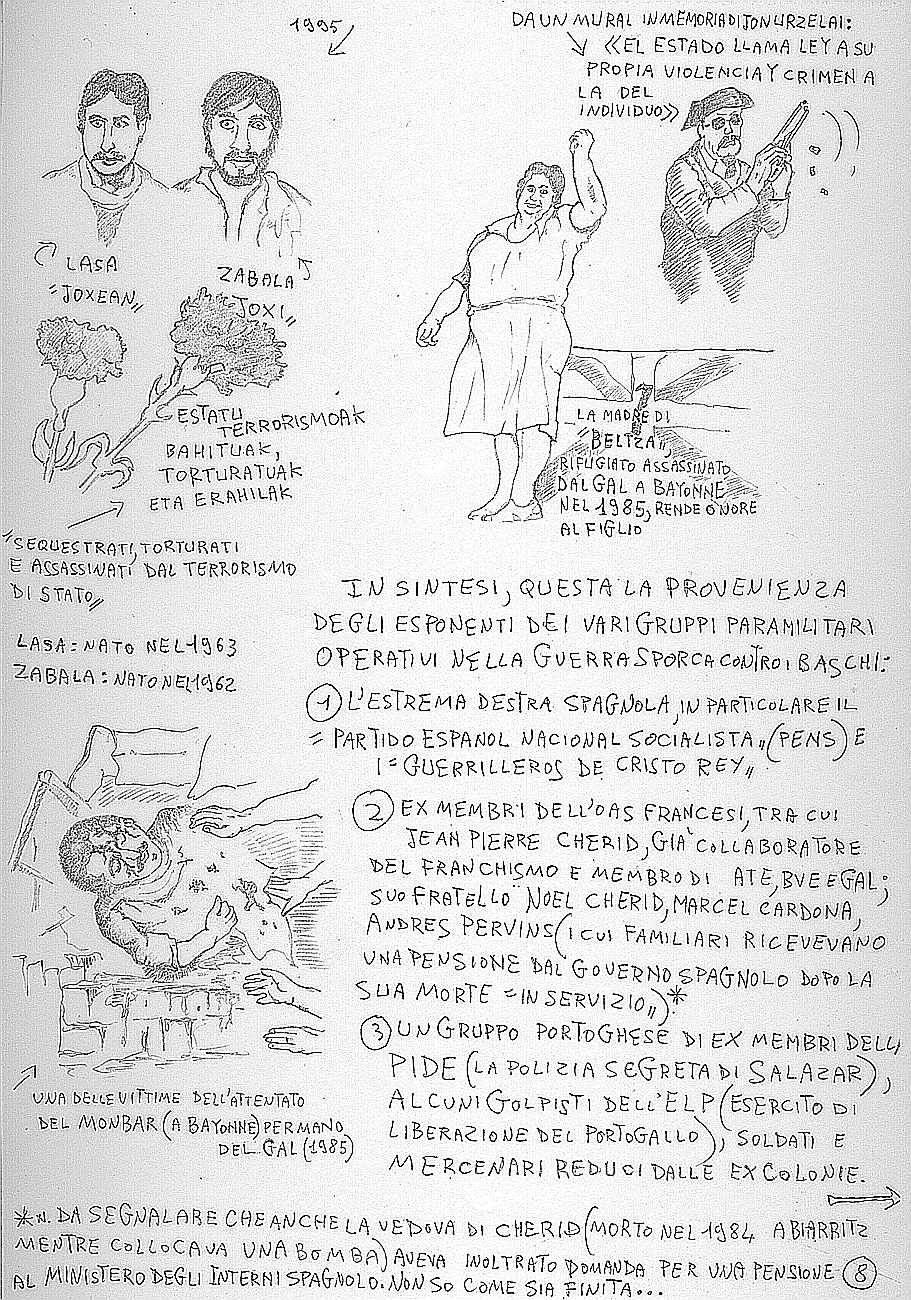 1995
DA UN MURAL IN MEMORIA DI JON URZELAI:
«EL ESTADO LLAMA LEY A SU
PROPIA VIOLENCIA Y CRIMEN A
LA DEL
INDIVIDUO»
LASA
"JOXEAN"
ZABALA
"JOXI"
ESTATU
TERRORISMOAK
BAHITUAK,
TORTURATUAK
ETA ERAHILAK
"SEQUESTRATI, TORTURATI
E ASSASSINATI DAL TERRORISMO
DI STATO"
LASA: NATO NEL 1963
ZABALA: NATO NEL 1962
LA MADRE DI
"BELTZA",
RIFUGIATO ASSASSINATO
DAL GAL A BAYONNE
NEL 1985, RENDE ONORE
AL FIGLIO
IN SINTESI, QUESTA LA PROVENIENZA
DEGLI ESPONENTI DEI VARI GRUPPI PARAMILITARI
OPERATIVI NELLA GUERRA SPORCA CONTRO I BASCHI:
1 L'ESTREMA DESTRA SPAGNOLA, IN PARTICOLARE IL
"PARTIDO ESPANOL NACIONAL SOCIALISTA" (PENS) E
I "GUERRILLEROS DE CRISTO REY"
2 EX MEMBRI DELL'OAS FRANCESI, TRA CUI
JEAN PIERRE CHERID, GIA' COLLABORATORE
DEL FRANCHISMO E MEMBRO DI ATE, BVE E GAL;
SUO FRATELLO NOEL CHERID, MARCEL CARDONA,
ANDRES PERVINS (I CUI FAMILIARI RICEVEVANO
UNA PENSIONE DAL GOVERNO SPAGNOLO DOPO LA
SUA MORTE "IN SERVIZIO")*
3 UN GRUPPO PORTOGHESE DI EX MEMBRI DELLA
PIDE (LA POLIZIA SEGRETA DI SALAZAR),
ALCUNI GOLPISTI DELL'ELP (ESERCITO DI
LIBERAZIONE DEL PORTOGALLO), SOLDATI E
MERCENARI REDUCI DALLE EX COLONIE.
UNA DELLE VITTIME DELL'ATTENTATO
DEL MONBAR (A BAYONNE) PER MANO
DEL GAL (1985)
*N. DA SEGNALARE CHE ANCHE LA VEDOVA DI CHERID (MORTO NEL 1984 A BIARRITZ
MENTRE COLLOCAVA UNA BOMBA) AVEVA INOLTRATO DOMANDA PER UNA PENSIONE
AL MINISTERO DEGLI INTERNI SPAGNOLO. NON SO COME SIA FINITA...
8